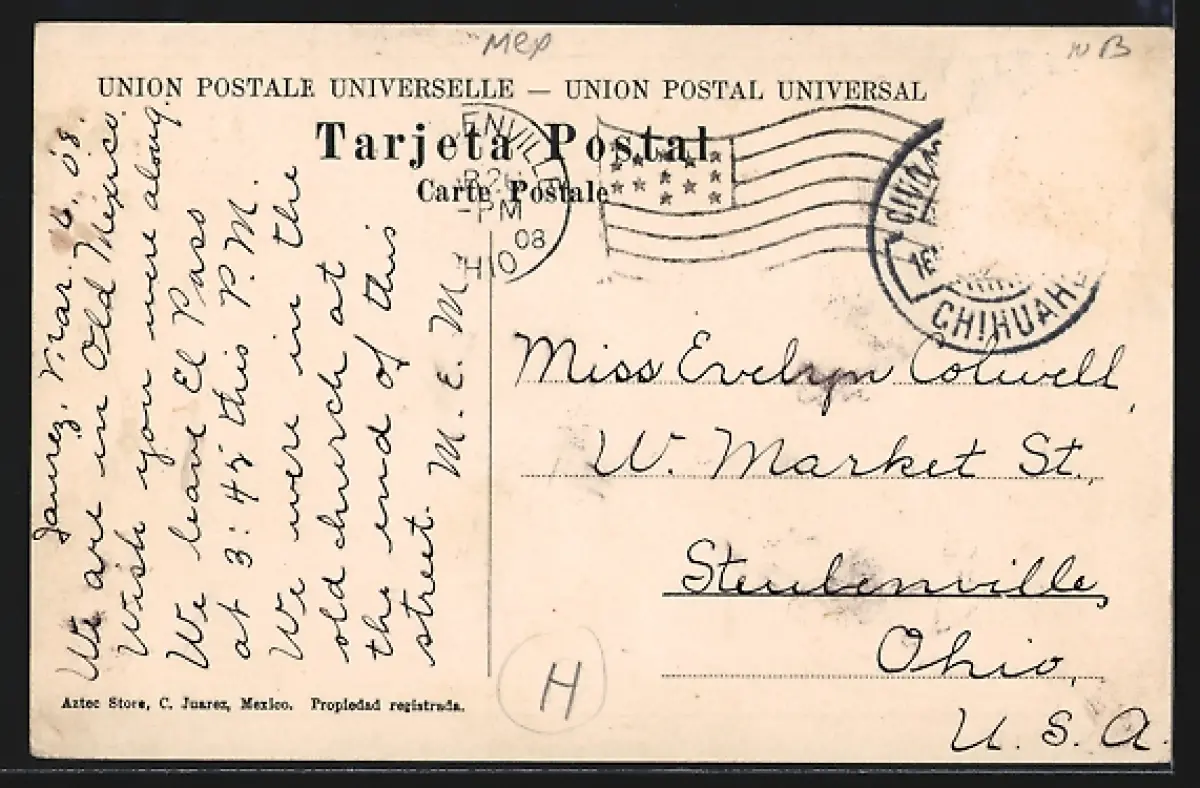 Mex
W B
UNION POSTALE UNIVERSELLE — UNION POSTAL UNIVERSAL
Tarjeta Postal
Carte Postale
ENVILLE
-PM
08
HIO
16
CHIHUAH
Jaurez. Mar. 16. '08.
We are in Old Mexico.
Wish you were along.
We leave El Paso
at 3:45 this P.M.
We were in the
old church at
the end of this
street. M. E. M.
Miss Evelyn Colwell,
W. Market St.,
Steubenville,
Ohio,
U. S. A.
H
Aztec Store, C. Juarez, Mexico. Propiedad registrada.